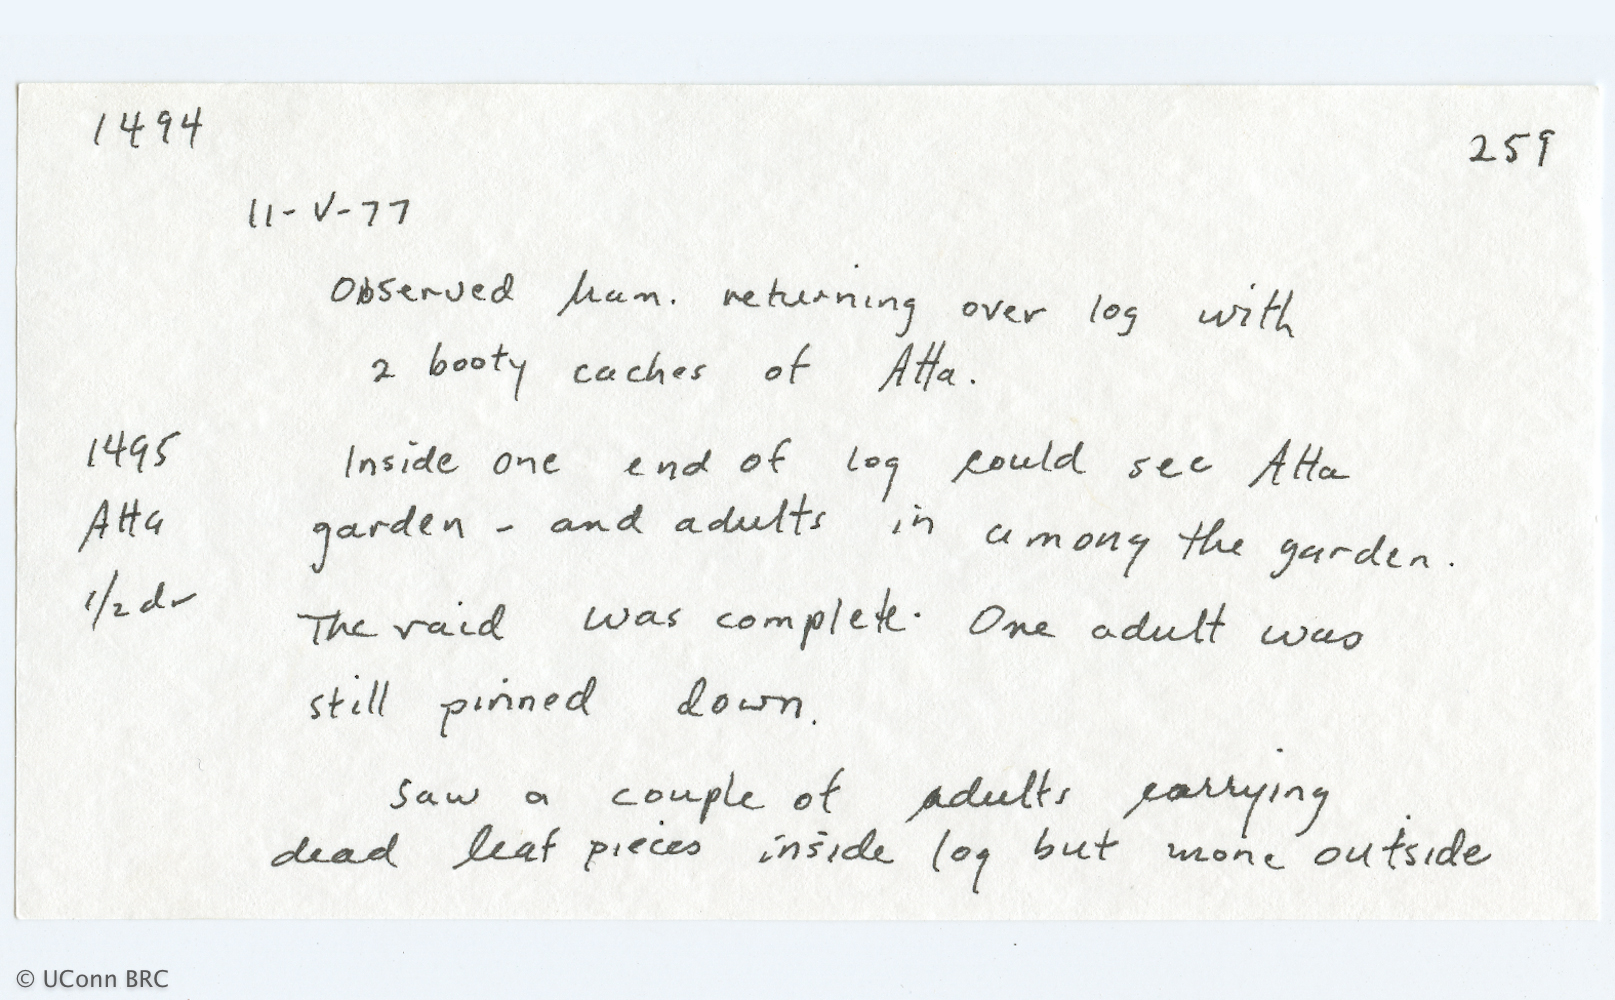 1494
259
11-V-77
Observed ham. returning over log with
2 booty caches of Atta.
1495 Inside one end of log could see Atta
Atta garden - and adults in among the garden.
1/2 dr The raid was complete. One adult was
still pinned down.
Saw a couple of adults carrying
dead leaf pieces inside log but none outside
© UConn BRC